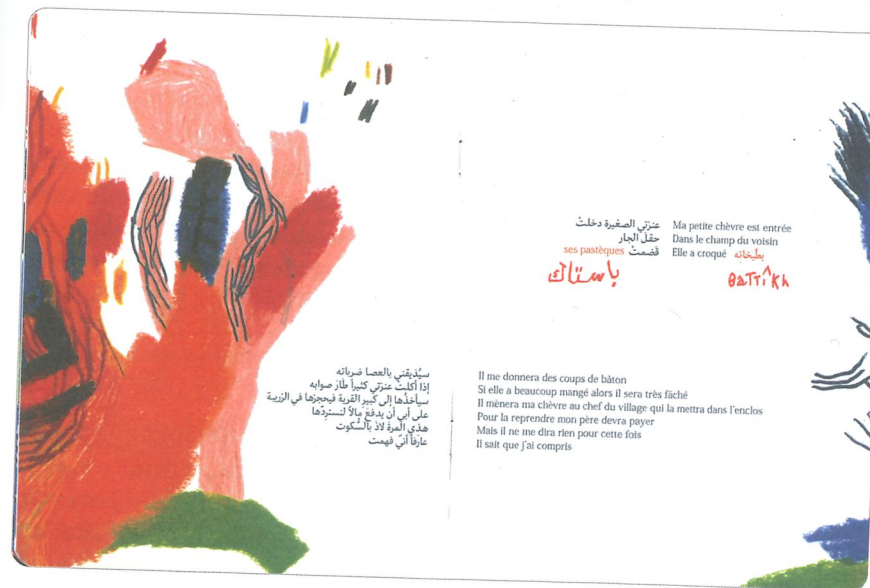 عنزتي الصغيرة دخلتْ
حقلَ الجار
قضمتْ ses pastèques
باستاك
Ma petite chèvre est entrée
Dans le champ du voisin
Elle a croqué بطّيخاته
BaTTîKh
سيُذيقني بالعصا ضرباته
إذا أكلتْ عنزتي كثيراً طارَ صوابه
سيأخذُها إلى كبيرِ القرية فيحجزها في الزريبة
على أبي أن يدفعَ مالاً لنستردّها
هذي المرة لاذ بالسُّكوت
عارفاً أنّي فهمت
Il me donnera des coups de bâton
Si elle a beaucoup mangé alors il sera très fâché
Il mènera ma chèvre au chef du village qui la mettra dans l'enclos
Pour la reprendre mon père devra payer
Mais il ne me dira rien pour cette fois
Il sait que j'ai compris